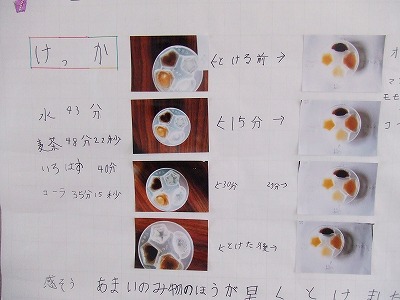 けっか
水 43分
麦茶 48分22秒
いろはす 40分
コーラ 35分15秒
←とける前→
←15分→
←30分 25分→
←とけた後→
オ
マン
モモ
コー
感そう あまいのみ物のほうが早くとけました